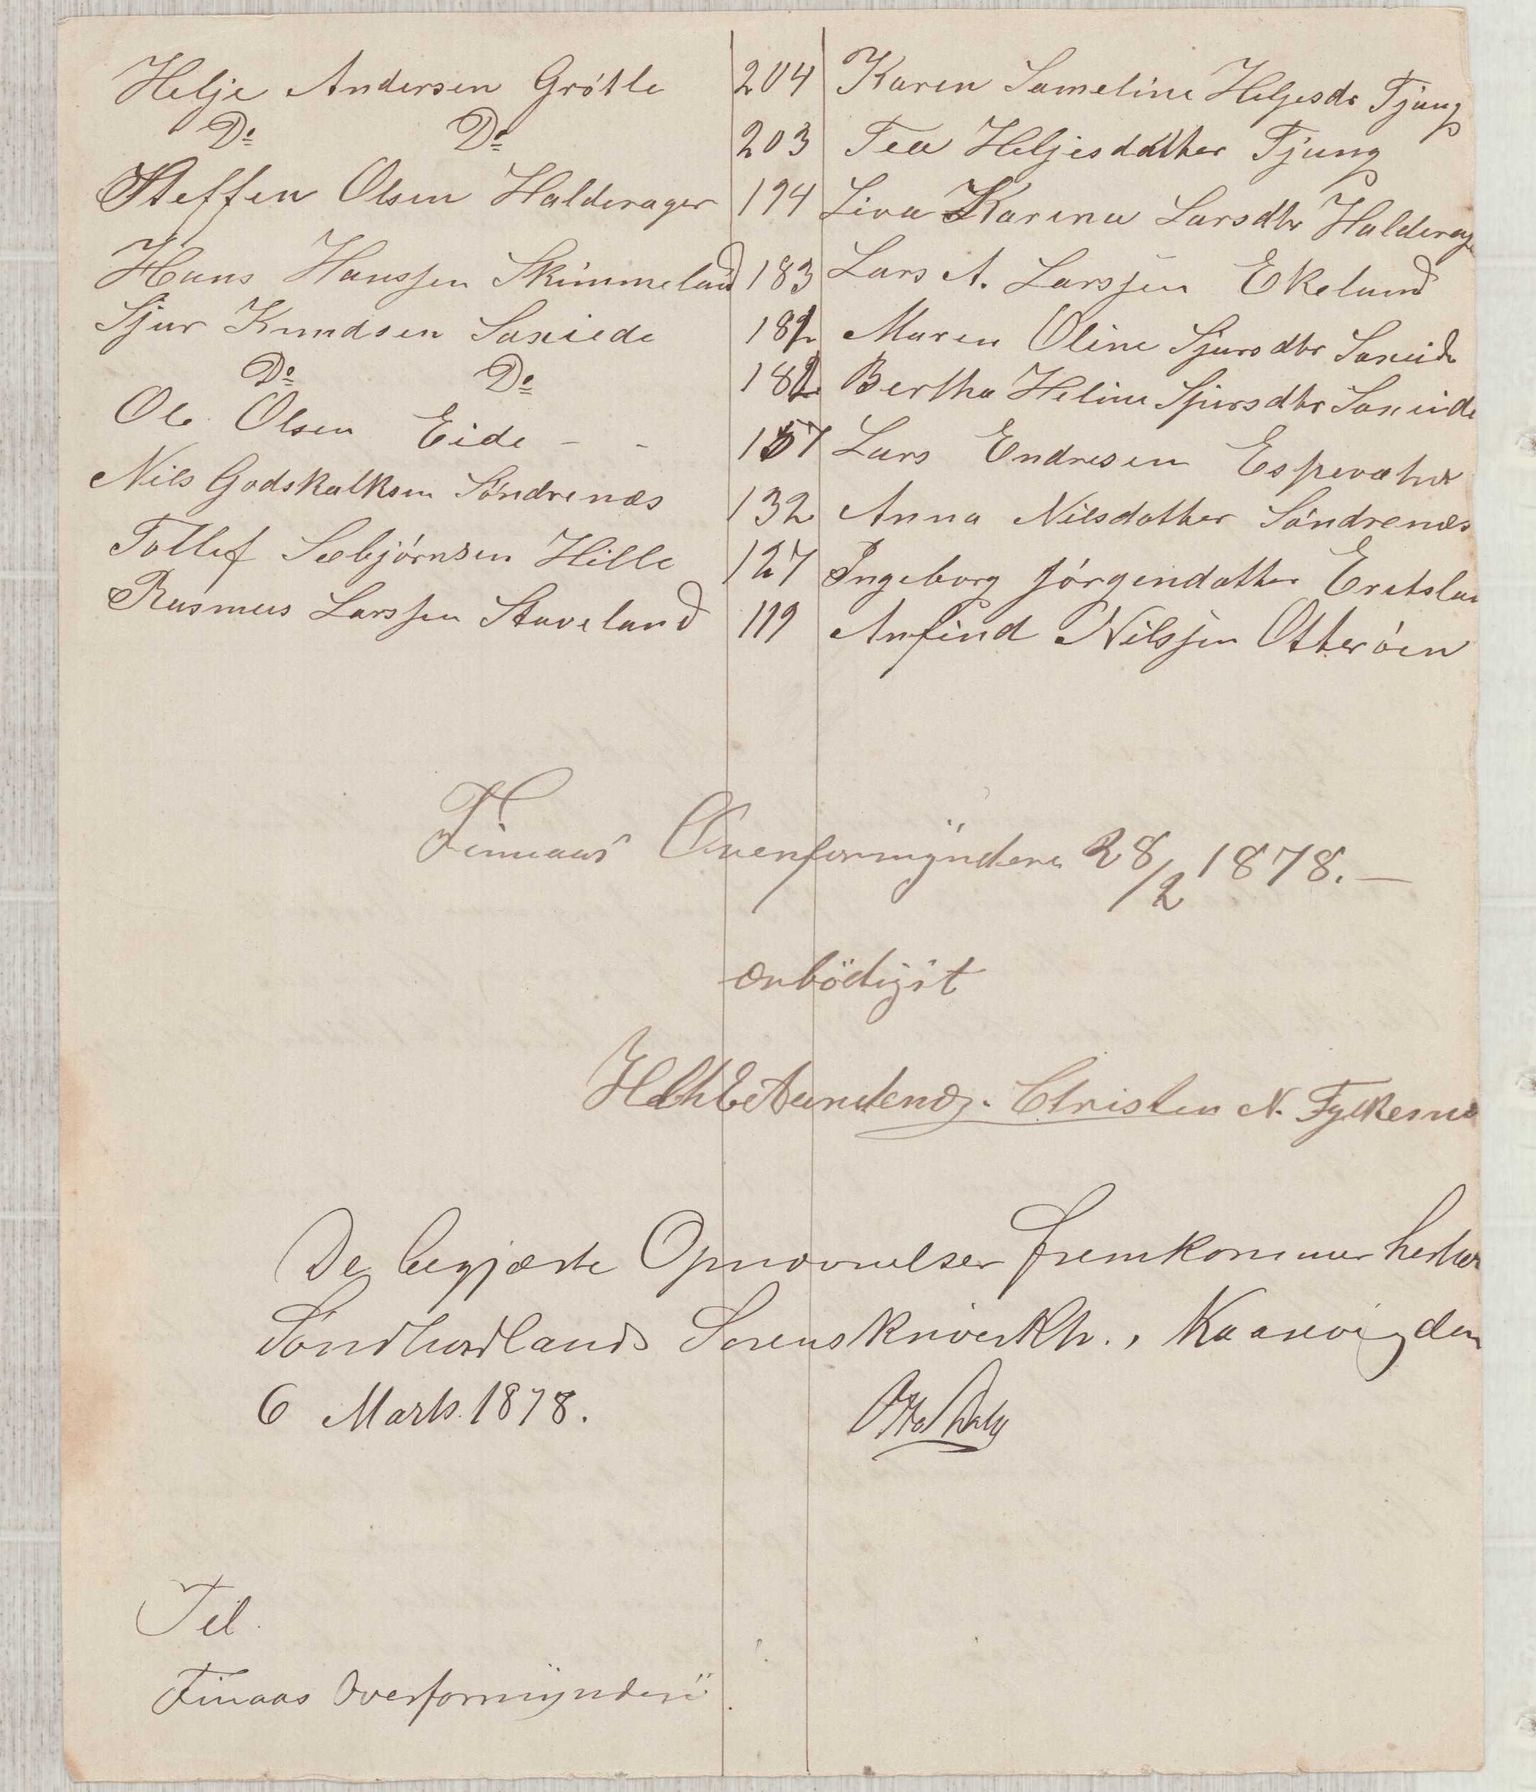 Helje Andersen Grötle 204 Karen Sameline Heljesdr Tjung
Do Do 203 Tea Heljesdatther Tjung
Steffen Olsen Halderager 194 Liva Karina Larsdtr Halderag
Hans Hanssen Skimmeland 183 Lars A. Larssen Ekeland
Sjur Knudsen Saxeide 181 Maren Oline Sjursdtr Saxeide
Do Do 182 Bertha Heline Sjursdtr Saxeide
Ole Olsen Eide - - 157 Lars Endresen Espevæthr
Nils Godskalksen Söndrenæs 132 Anna Nilsdatther Söndrenæs
Tollef Sæbjörnsen Hille 127 Ingeborg Jörgendatther Eretslan
Rasmus Larssen Staveland 119 Anfind Nilssen Otteröen
Finnaas Overformynderi 28/2 1878. —
ærbödigst
Christen N. Fylkesnæ
De begjærte Opnævnelser fremkommer herher
Söndhordlands Sorenskriverkth., Kaarevig den
6 Marts 1878.
Til
Finaas Overformynderi